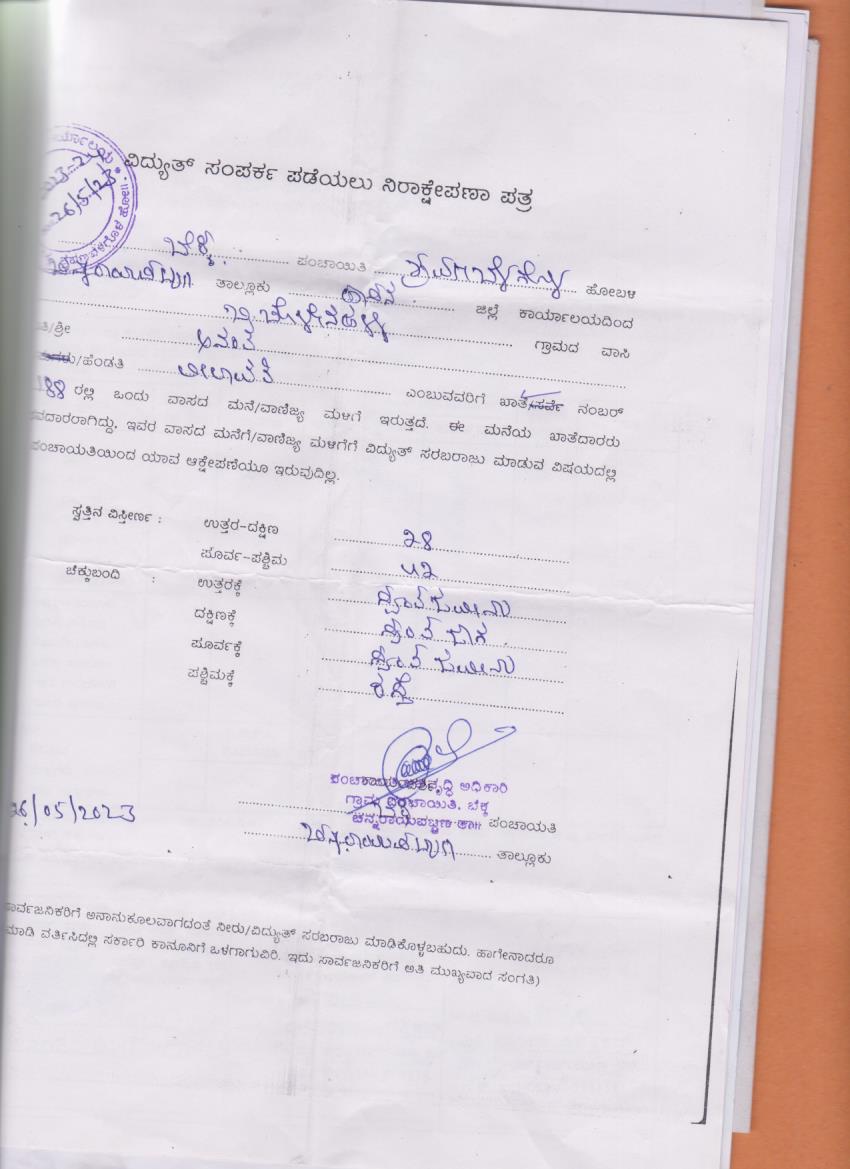 ವಿದ್ಯುತ್ ಸಂಪರ್ಕ ಪಡೆಯಲು ನಿರಾಕ್ಷೇಪಣಾ ಪತ್ರ
26/5/23
ಬೆಕ್ಕ ಪಂಚಾಯಿತಿ ಶ್ರವಣಬೆಳಗೊಳ ಹೋಬಳಿ
ಚನ್ನರಾಯಪಟ್ಟಣ ತಾಲ್ಲೂಕು ಹಾಸನ ಜಿಲ್ಲೆ ಕಾರ್ಯಾಲಯದಿಂದ
ಗ್ರಾಮದ ವಾಸಿ
ಶ್ರೀ ಅನಂತ
/ಹೆಂಡತಿ ಲೀಲಾವತಿ ಎಂಬುವವರಿಗೆ ಖಾತೆ/ಸರ್ವೆ ನಂಬರ್
188 ರಲ್ಲಿ ಒಂದು ವಾಸದ ಮನೆ/ವಾಣಿಜ್ಯ ಮಳಿಗೆ ಇರುತ್ತದೆ. ಈ ಮನೆಯ ಖಾತೆದಾರರು
ವದಾರರಾಗಿದ್ದು, ಇವರ ವಾಸದ ಮನೆಗೆ/ವಾಣಿಜ್ಯ ಮಳಿಗೆಗೆ ವಿದ್ಯುತ್ ಸರಬರಾಜು ಮಾಡುವ ವಿಷಯದಲ್ಲಿ
ಪಂಚಾಯತಿಯಿಂದ ಯಾವ ಆಕ್ಷೇಪಣೆಯೂ ಇರುವುದಿಲ್ಲ.
ಸ್ವತ್ತಿನ ವಿಸ್ತೀರ್ಣ : ಉತ್ತರ-ದಕ್ಷಿಣ ೨೪
ಪೂರ್ವ-ಪಶ್ಚಿಮ ೫೨
ಚೆಕ್ಕುಬಂದಿ : ಉತ್ತರಕ್ಕೆ ಸ್ವಂತ ಜಮೀನು
ದಕ್ಷಿಣಕ್ಕೆ ಸ್ವಂತ ಜಾಗ
ಪೂರ್ವಕ್ಕೆ ಸ್ವಂತ ಜಮೀನು
ಪಶ್ಚಿಮಕ್ಕೆ ರಸ್ತೆ
ಪಂಚಾಯಿತಿ ಅಭಿವೃದ್ಧಿ ಅಧಿಕಾರಿ
ಗ್ರಾಮ ಪಂಚಾಯಿತಿ, ಬೆಕ್ಕ
26/05/2023 ಚನ್ನರಾಯಪಟ್ಟಣ ತಾ|| ಪಂಚಾಯತಿ
ಚನ್ನರಾಯಪಟ್ಟಣ ತಾಲ್ಲೂಕು
ಸಾರ್ವಜನಿಕರಿಗೆ ಅನಾನುಕೂಲವಾಗದಂತೆ ನೀರು/ವಿದ್ಯುತ್ ಸರಬರಾಜು ಮಾಡಿಕೊಳ್ಳಬಹುದು. ಹಾಗೇನಾದರೂ
ಮಾಡಿ ವರ್ತಿಸಿದಲ್ಲಿ ಸರ್ಕಾರಿ ಕಾನೂನಿಗೆ ಒಳಗಾಗುವಿರಿ. ಇದು ಸಾರ್ವಜನಿಕರಿಗೆ ಅತಿ ಮುಖ್ಯವಾದ ಸಂಗತಿ)